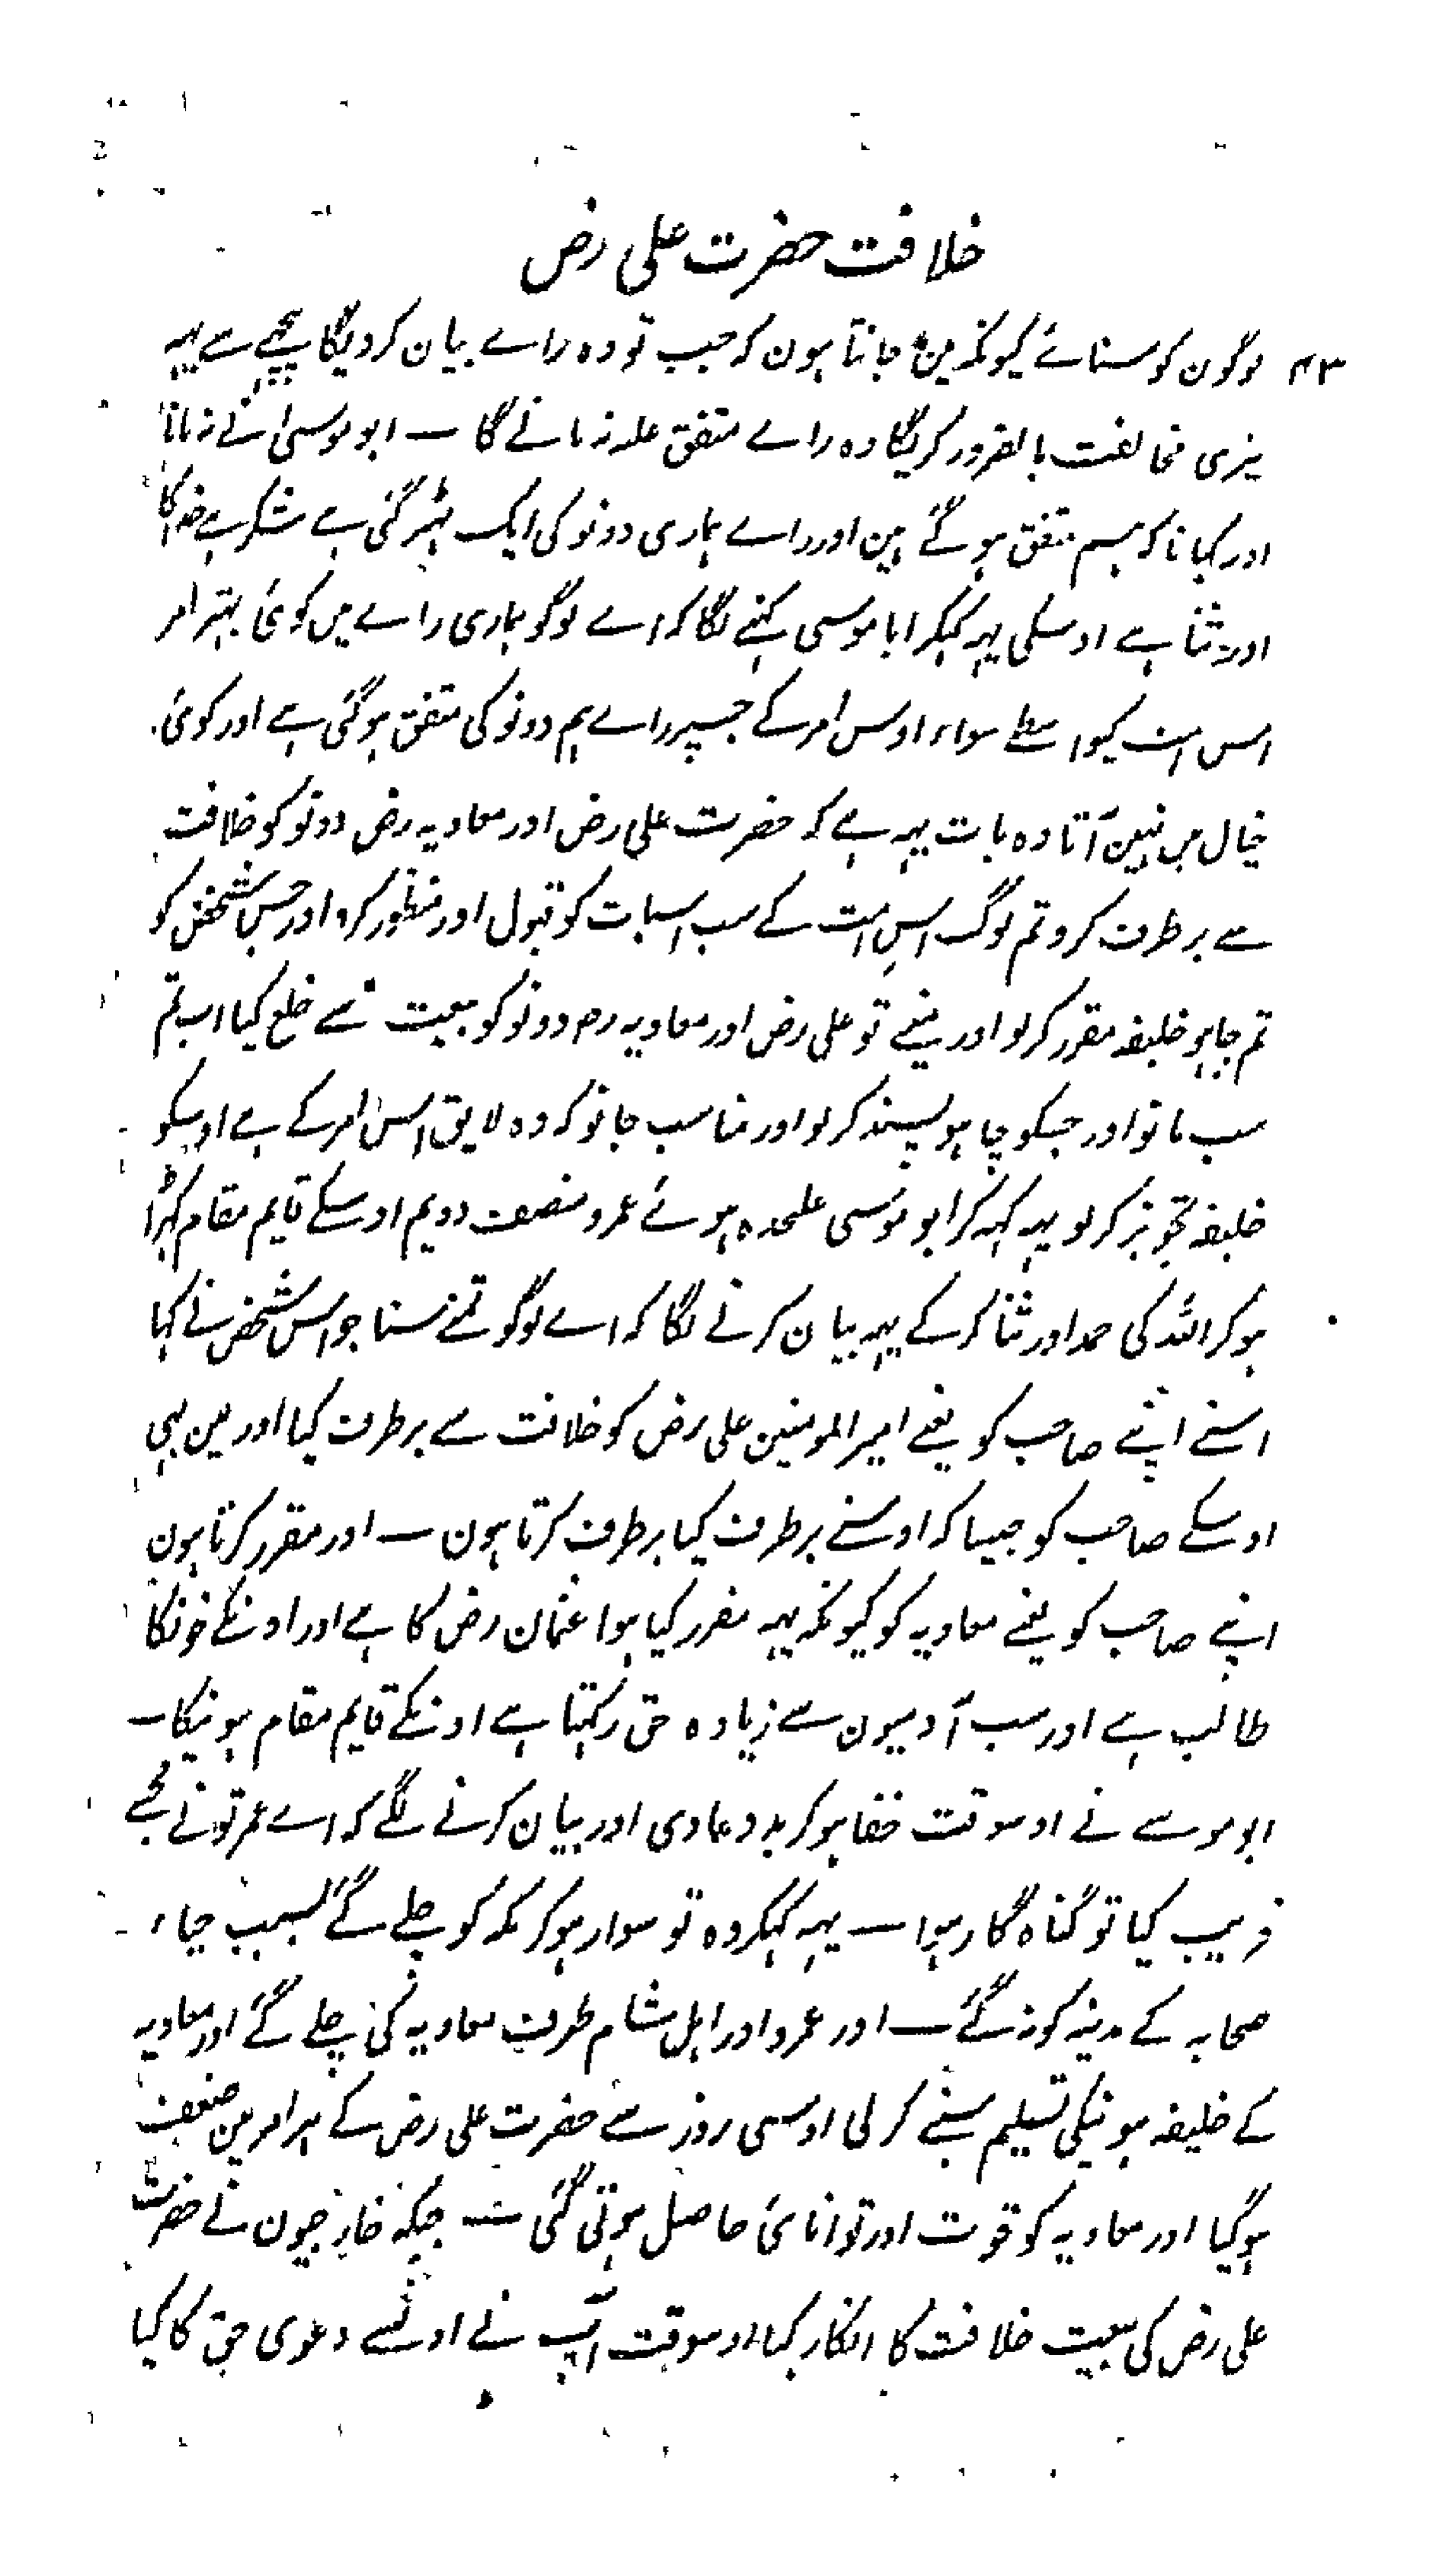 خلافت حضرت علی رض
۴۳ لوگون کو سنائے کیونکہ مین جانتا ہون کہ جب تو وہ راے بیان کر دیگا پیچھے سے یہہ
تیری مخالفت بالضرور کریگا وہ راے متفق علہ نہ مانے گا — ابو موسیٰ نے نہ مانا
اور کہا نا کہ ہم متفق ہو گئے ہین اور راے ہماری دونو کی ایک ٹہر گئی ہے شکر ہے خدا کا
اور ثنا ہے اوسکی یہہ کہکر ابا موسی کہنے لگا کہ اے لوگو ہماری راے میں کوئی بہتر امر
اس امت کیواسطے سواء اوس امر کے جسپر راے ہم دونو کی متفق ہو گئی ہے اور کوئی
خیال میں نہین آتا وہ بات یہہ ہے کہ حضرت علی رض اور معاویہ رض دونو کو خلافت
سے برطرف کرو تم لوگ اس امت کے سب اسبات کو قبول اور منظور کرو اور جس شخص کو
تم چاہو خلیفہ مقرر کر لو اور مینے تو علی رض اور معاویہ رض دونو کو بیعت سے خلع کیا اب تم
سب مانو اور جسکو چاہو پسند کر لو اور مناسب جانو کہ وہ لایق اس امر کے ہے اوسکو
خلیفہ تجویز کر لو یہہ کہہ کر ابو موسی علحدہ ہوئے عمرو منصف دویم اوسکے قایم مقام کہڑا
ہو کر اللہ کی حمد اور ثنا کر کے یہہ بیان کرنے لگا کہ اے لوگو تمنے سنا جو اس شخص نے کہا
اسنے اپنے صاحب کو یعنے امیر المومنین علی رض کو خلافت سے برطرف کیا اور مین بہی
اوسکے صاحب کو جیسا کہ اوسنے برطرف کیا برطرف کرتا ہون — اور مقرر کرتا ہون
اپنے صاحب کو یعنے معاویہ کو کیونکہ یہہ مقرر کیا ہوا عثمان رض کا ہے اور اونکے خونکا
طالب ہے اور سب آدمیون سے زیادہ حق رکہتا ہے اونکے قایم مقام ہونیکا —
ابو موسے نے اوسوقت خفا ہو کر بد دعا دی اور بیان کرنے لگے کہ اے عمر تو نے مجھے
فریب کیا تو گناہ گار ہوا — یہہ کہکر وہ تو سوار ہو کر مکہ کو چلے گئے بسبب حیاء
صحابہ کے مدینہ کو نہ گئے — اور عمرو اور اہل شام طرف معاویہ کی چلے گئے اور معاویہ
کے خلیفہ ہونیکی تسلیم سبنے کر لی اوسی روز سے حضرت علی رض کے ہر امر مین ضعف
ہو گیا اور معاویہ کو قوت اور توانائی حاصل ہوتی گئی — جبکہ خارجیون نے حضرت
علی رض کی بیعت خلافت کا انکار کیا اوسوقت آپ نے اونسے دعوی حق کا کیا